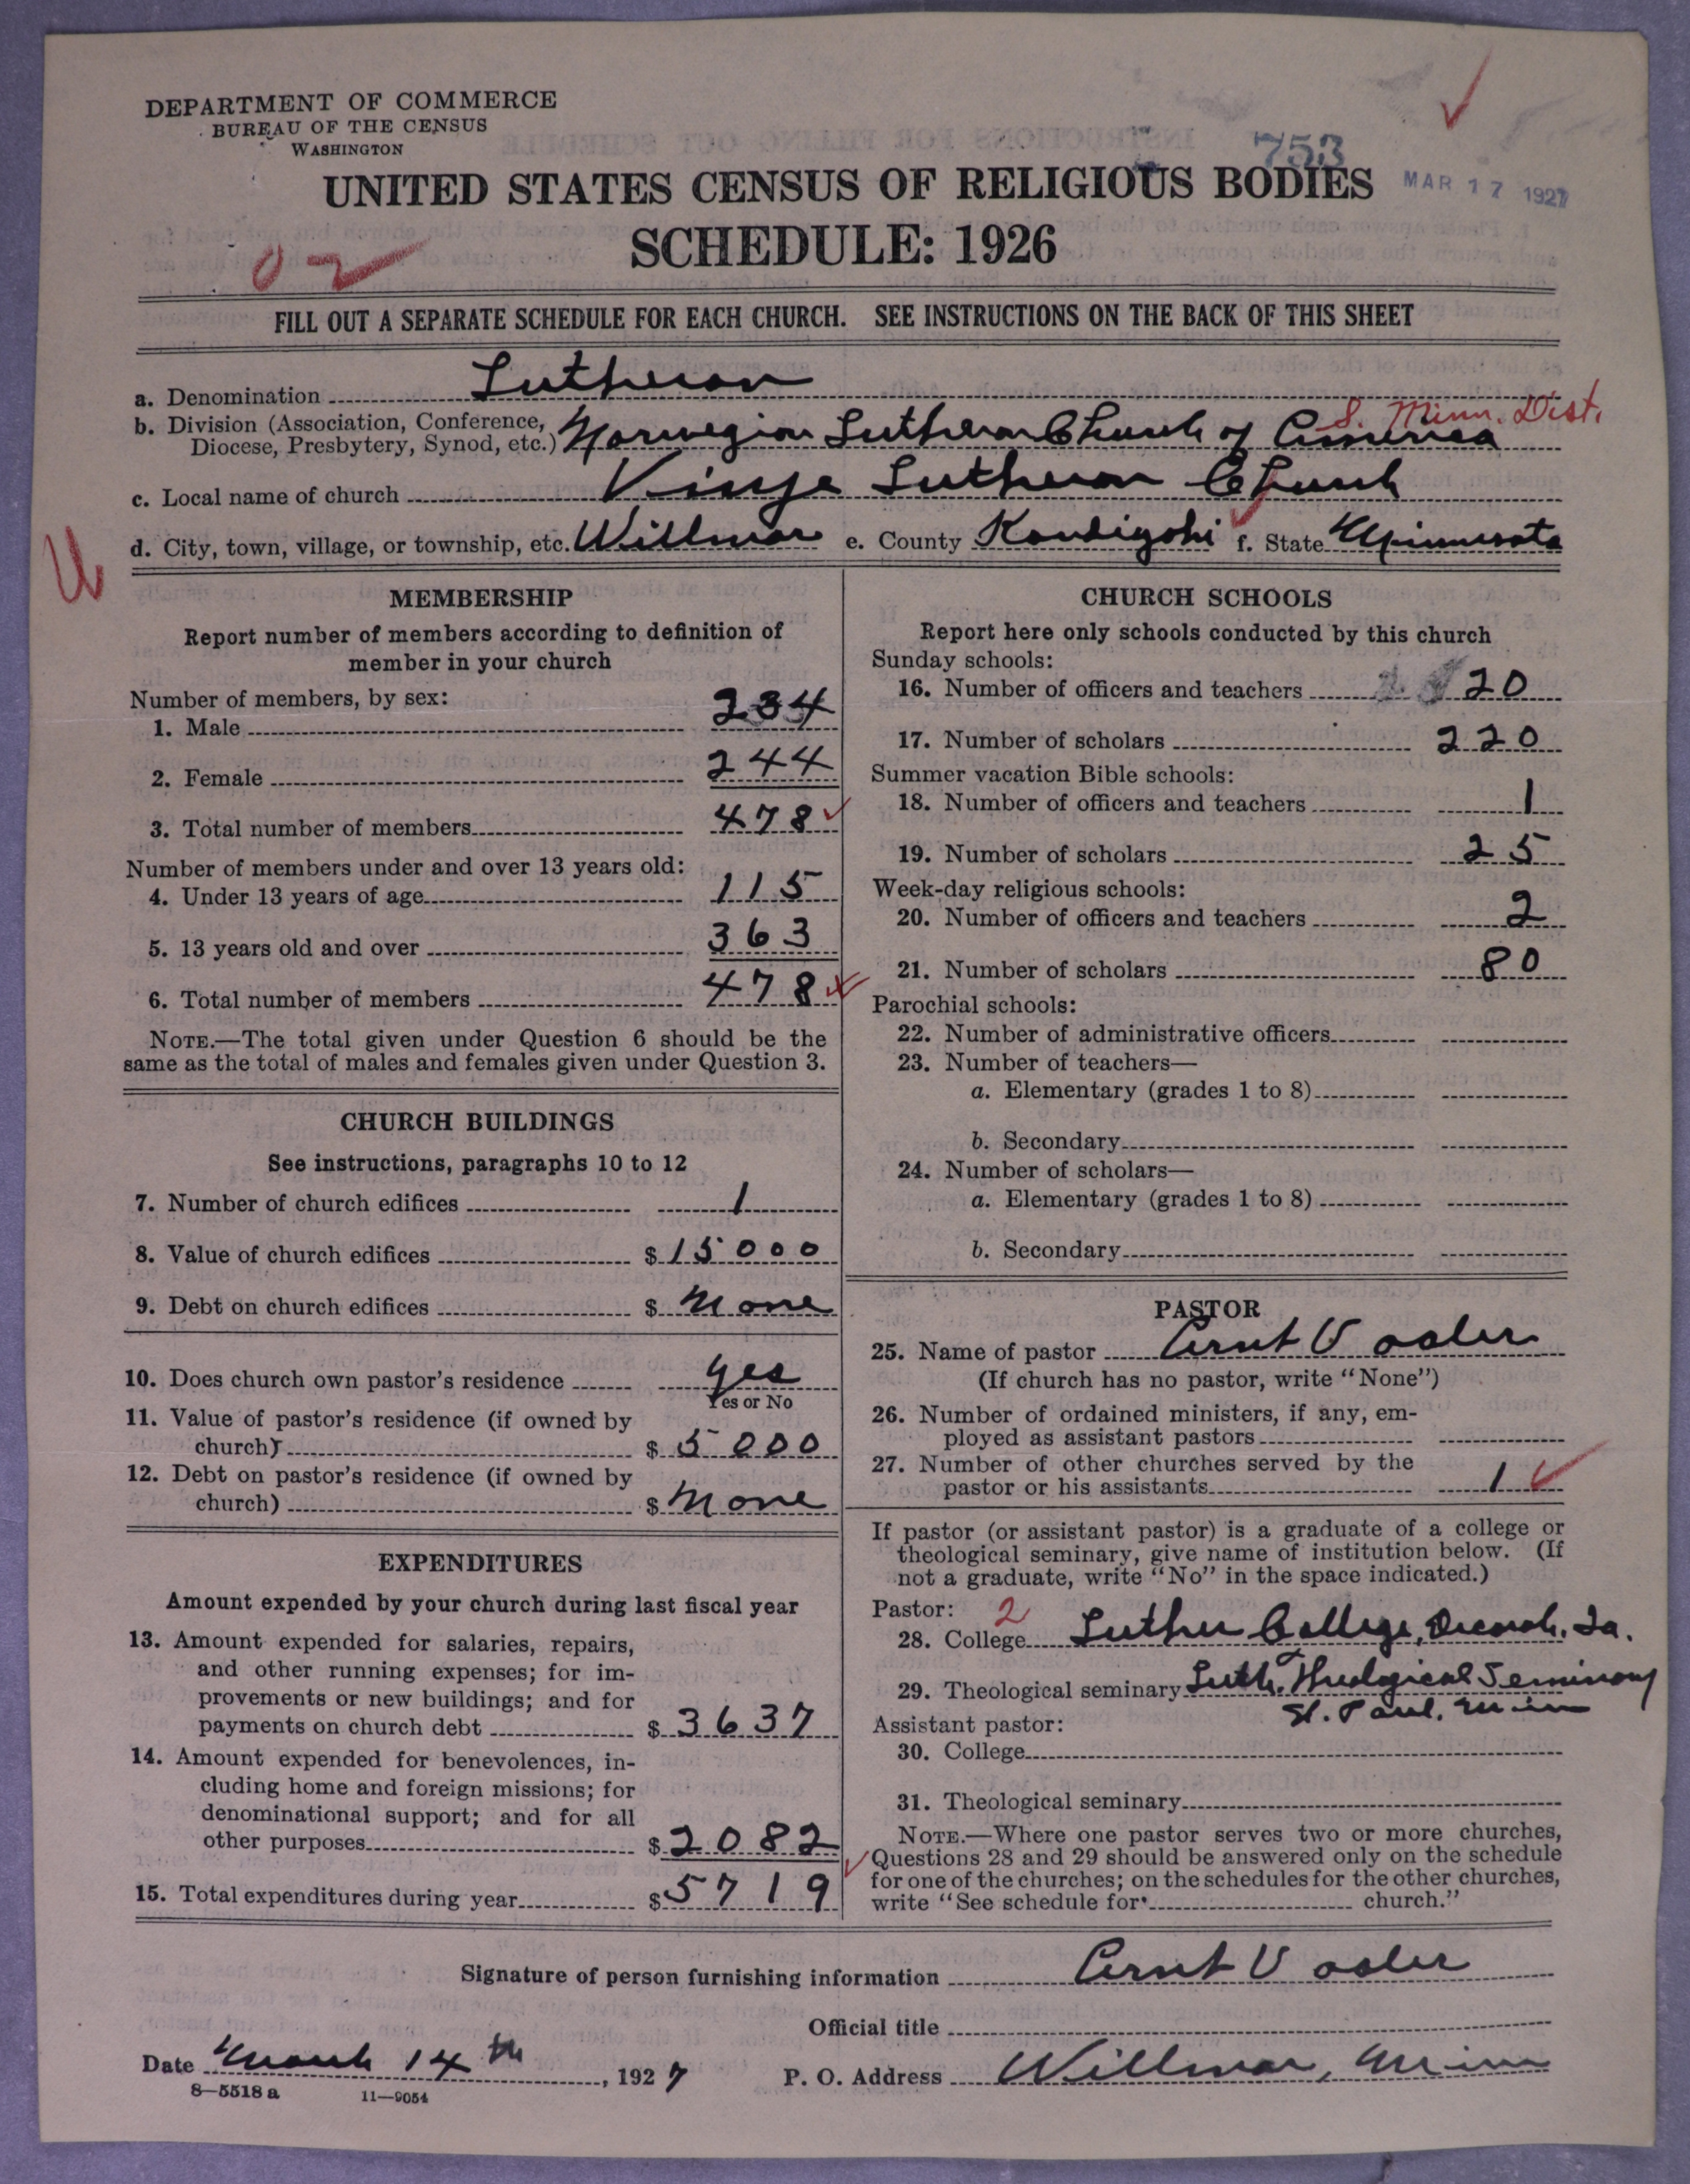 DEPARTMENT OF COMMERCE
BUREAU OF THE CENSUS
WASHINGTON
753
MAR 17 1927
UNITED STATES CENSUS OF RELIGIOUS BODIES
SCHEDULE: 1926
02
FILL OUT A SEPARATE SCHEDULE FOR EACH CHURCH. SEE INSTRUCTIONS ON THE BACK OF THIS SHEET
a. Denomination Lutheran
S. Minn. Dist.
b. Division (Association, Conference,
Diocese, Presbytery, Synod, etc.) Norwegian Lutheran Church of America
c. Local name of church Vinje Lutheran Church
U
d. City, town, village, or township, etc. Willmar e. County Kandiyohi f. State Minnesota
MEMBERSHIP
Report number of members according to definition of
member in your church
Number of members, by sex:
1. Male 234
2. Female 244
3. Total number of members 478
Number of members under and over 13 years old:
4. Under 13 years of age 115
5. 13 years old and over 363
6. Total number of members 478
NOTE.—The total given under Question 6 should be the
same as the total of males and females given under Question 3.
CHURCH BUILDINGS
See instructions, paragraphs 10 to 12
7. Number of church edifices 1
8. Value of church edifices $ 15000
9. Debt on church edifices $ None
10. Does church own pastor's residence yes
Yes or No
11. Value of pastor's residence (if owned by
church) $ 5000
12. Debt on pastor's residence (if owned by
church) $ None
EXPENDITURES
Amount expended by your church during last fiscal year
13. Amount expended for salaries, repairs,
and other running expenses; for im-
provements or new buildings; and for
payments on church debt $ 3637
14. Amount expended for benevolences, in-
cluding home and foreign missions; for
denominational support; and for all
other purposes $ 2082
15. Total expenditures during year $ 5719
CHURCH SCHOOLS
Report here only schools conducted by this church
Sunday schools:
16. Number of officers and teachers 20
17. Number of scholars 220
Summer vacation Bible schools:
18. Number of officers and teachers 1
19. Number of scholars 25
Week-day religious schools:
20. Number of officers and teachers 2
21. Number of scholars 80
Parochial schools:
22. Number of administrative officers
23. Number of teachers—
a. Elementary (grades 1 to 8)
b. Secondary
24. Number of scholars—
a. Elementary (grades 1 to 8)
b. Secondary
PASTOR
25. Name of pastor Arnt Vaaler
(If church has no pastor, write "None")
26. Number of ordained ministers, if any, em-
ployed as assistant pastors
27. Number of other churches served by the
pastor or his assistants 1
If pastor (or assistant pastor) is a graduate of a college or
theological seminary, give name of institution below. (If
not a graduate, write "No" in the space indicated.)
Pastor: 2
28. College Luther College, Decorah, Ia.
29. Theological seminary Luth. Theological Seminary
St. Paul, Minn
Assistant pastor:
30. College
31. Theological seminary
NOTE.—Where one pastor serves two or more churches,
Questions 28 and 29 should be answered only on the schedule
for one of the churches; on the schedules for the other churches,
write "See schedule for church."
Signature of person furnishing information Arnt Vaaler
Official title
Date March 14th, 1927 P. O. Address Willmar, Minn
8—5518a 11—9054